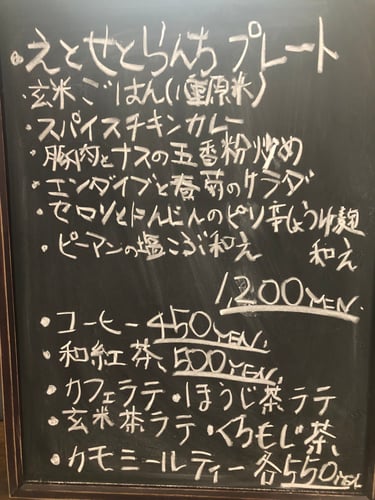 ・えとせとらんち プレート
・玄米ごはん(重原米)
・スパイスチキンカレー
・豚肉とナスの五香粉炒め
・エンダイブと春菊のサラダ
・セロリとにんじんのピリ辛しょうゆ麹
和え
・ピーマンの塩こぶ和え
1200YEN.
・コーヒー 450YEN.
・和紅茶 500YEN.
・カフェラテ・ほうじ茶ラテ
・玄米茶ラテ・くろもじ茶
・カモミールティー 各550YEN